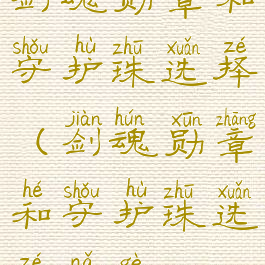 剑魂勋章和
shǒu hù zhū xuǎn zé
守护珠选择
jiàn hún xūn zhāng
(剑魂勋章
hé shǒu hù zhū xuǎn
和守护珠选
zé nǎ gè